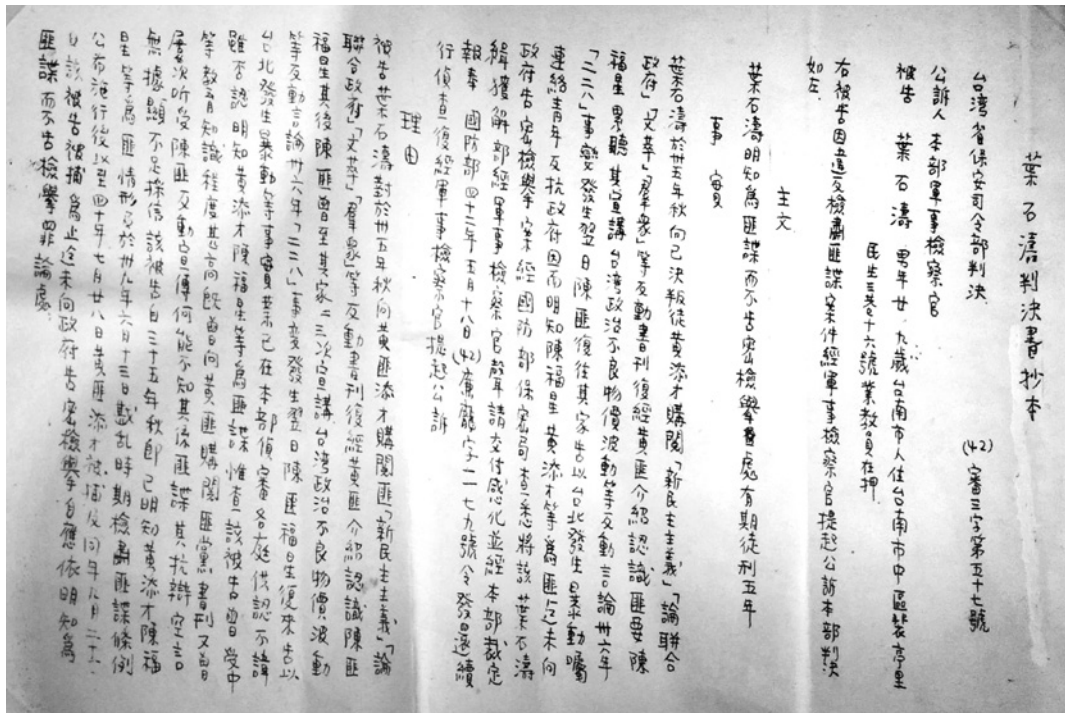 葉石濤判決書抄本
台湾省保安司令部判決 (42)審三字第五十七號
公訴人 本部軍事檢察官
被告 葉石濤 男年廿九歲台南市人住台南市中區裴亭里
民生三巷十六號業教員在押
右被告因違反檢肅匪諜案件經軍事檢察官提起公訴本部判決
如左
主文
葉石濤明知為匪諜而不告密檢舉處有期徒刑五年
事實
葉石濤於卅五年秋向已決叛徒黃添才購閱「新民主主義」「論聯合
政府」「文萃」「羣衆」等反動書刊復經黃匪介紹認識匪要陳
福星累聽其宣講台湾政治不良物價波動等反動言論卅六年
「二二八」事變發生翌日陳匪復往其家告以台北發生暴動囑
連絡青年反抗政府因而明知陳福星黃添才等為匪迄未向
政府告密檢舉案經國防部保密局查悉將該葉石濤
緝獲解部經軍事檢察官聲請交付感化並經本部裁定
報奉 國防部四十二年五月十八日(42)廉龐字一一七九號令發還續
行偵查復經軍事檢察官提起公訴
理由
被告葉石濤對於卅五年秋向黃匪添才購閱匪「新民主主義」「論
聯合政府」「文萃」「羣衆」等反動書刊復經黃匪介紹認識陳匪
福星其後陳匪曾至其家二三次宣講台湾政治不良物價波動
等反動言論卅六年「二二八」事變發生翌日陳匪福星復來告以
台北發生暴動等事實業已在本部偵審各庭供認不諱
雖否認明知黃添才陳福星等為匪諜惟查該被告曾受中
等教育知識程度甚高既曾向黃匪購閱匪黨書刊又曾
屢次听受陳匪反動宣傳何能不知其係匪諜其抗辯空言
無據顯不足採信該被告自三十五年秋即已明知黃添才陳福
星等為匪情形乃於卅九年六月十三日戡乱時期檢肅匪諜條例
公布施行後以至四十年七月廿八日黃匪添才被捕及同年八月二十
日該被告被捕為止迄未向政府告密檢舉自應依明知為
匪諜而不告檢舉罪論處